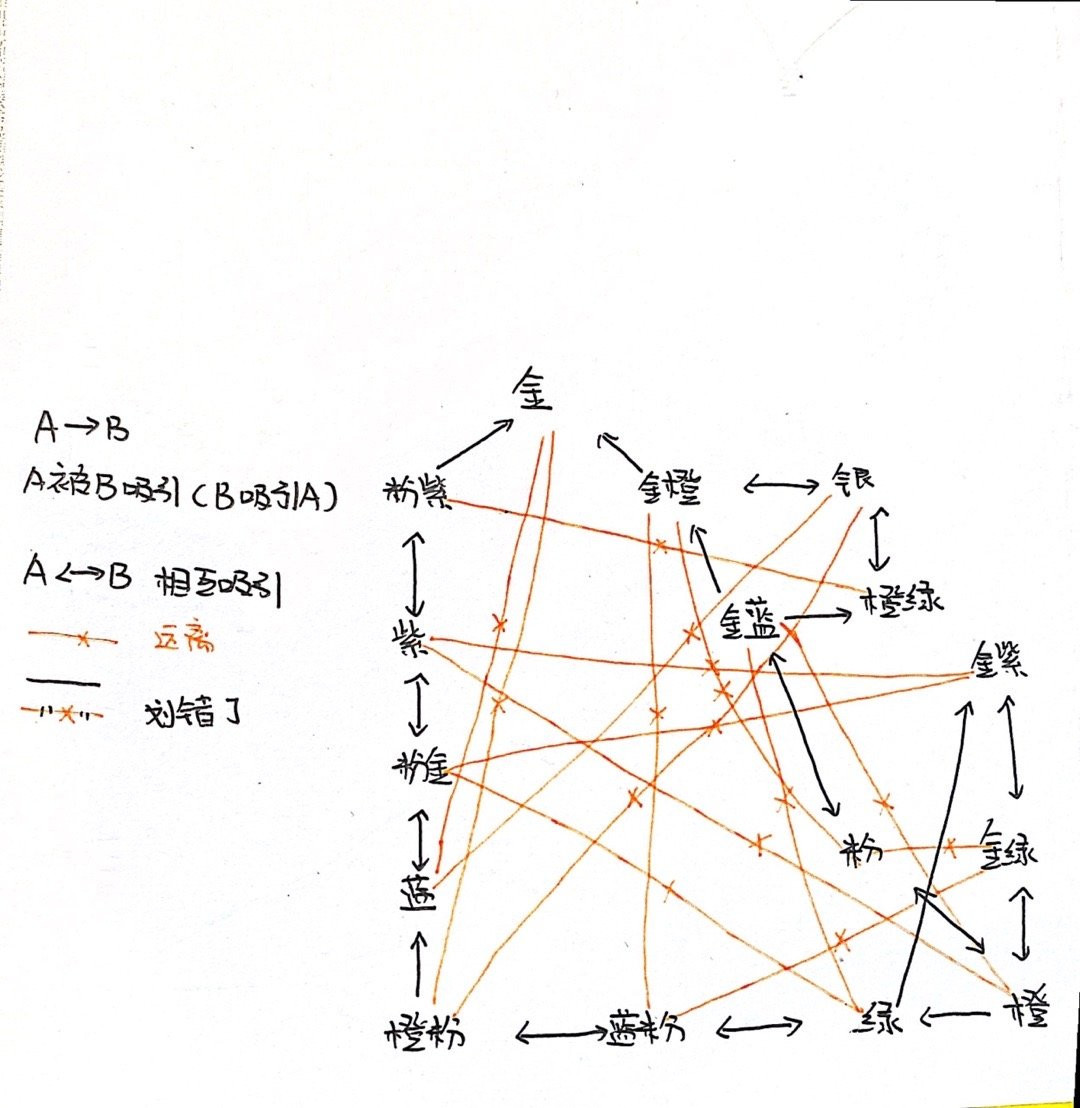 金
A→B
A被B吸引(B吸引A)
粉紫
金橙
银
A<->B 相互吸引
远离
划错了
橙绿
金蓝
紫
金紫
粉金
粉
金绿
蓝
橙粉
蓝粉
绿
橙